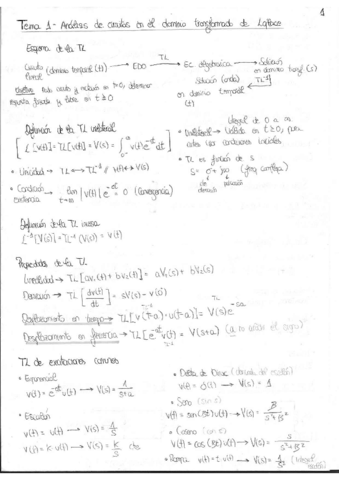 1
Tema 1 - Análisis de circuitos en el dominio transformado de Laplace
Esquema de la TL
Circuito (dominio temporal (t)) → EDO → Ec algebraica → Solución
Lineal en dominio transf (s)
Solución (onda) TL⁻¹
en dominio temporal (t)
Objetivo: Dado circuito y excitación en t>0, determinar
respuesta forzada y libre en t≥0
Definición de la TL unilateral
[L[v(t)] = TL[v(t)] = V(s) = ∫₀^∞ v(t)e^(-st) dt]
Integral de 0 a ∞
• Unilateral → Válida en t≥0, pues
condiciones iniciales
• TL es función de s
s = σ + jω (frec compleja)
• Unicidad → TL ↔ TL⁻¹ // v(t) ↔ V(s)
• Condición existencia → lim t→∞ |v(t)| e^(-σt) = 0 (Convergencia)
Definición de la TL inversa
L⁻¹[V(s)] = TL⁻¹(V(s)) = v(t)
Propiedades de la TL
Linealidad → TL[av₁(t) + bv₂(t)] = aV₁(s) + bV₂(s)
Derivación → TL[dv(t)/dt] = sV(s) - v(0)
Desplazamiento en tiempo → TL[v(t-a)·u(t-a)] = V(s)e^(-sa)
Desplazamiento en frecuencia → TL[e^(-at)v(t)] = V(s+a) (a el signo)
TL de excitaciones comunes
• Exponencial
v(t) = e^(-at)u(t) → V(s) = 1/(s+a)
• Escalón
v(t) = u(t) → V(s) = 1/s
v(t) = k·u(t) → V(s) = k/s cte
• Delta de Dirac (derivada del escalón)
v(t) = δ(t) → V(s) = 1
• Seno (con β)
v(t) = sen(βt)u(t) → V(s) = β/(s²+β²)
• Coseno (con β)
v(t) = cos(βt)u(t) → V(s) = s/(s²+β²)
• Rampa v(t) = t·u(t) → V(s) = 1/s² (integral escalón)